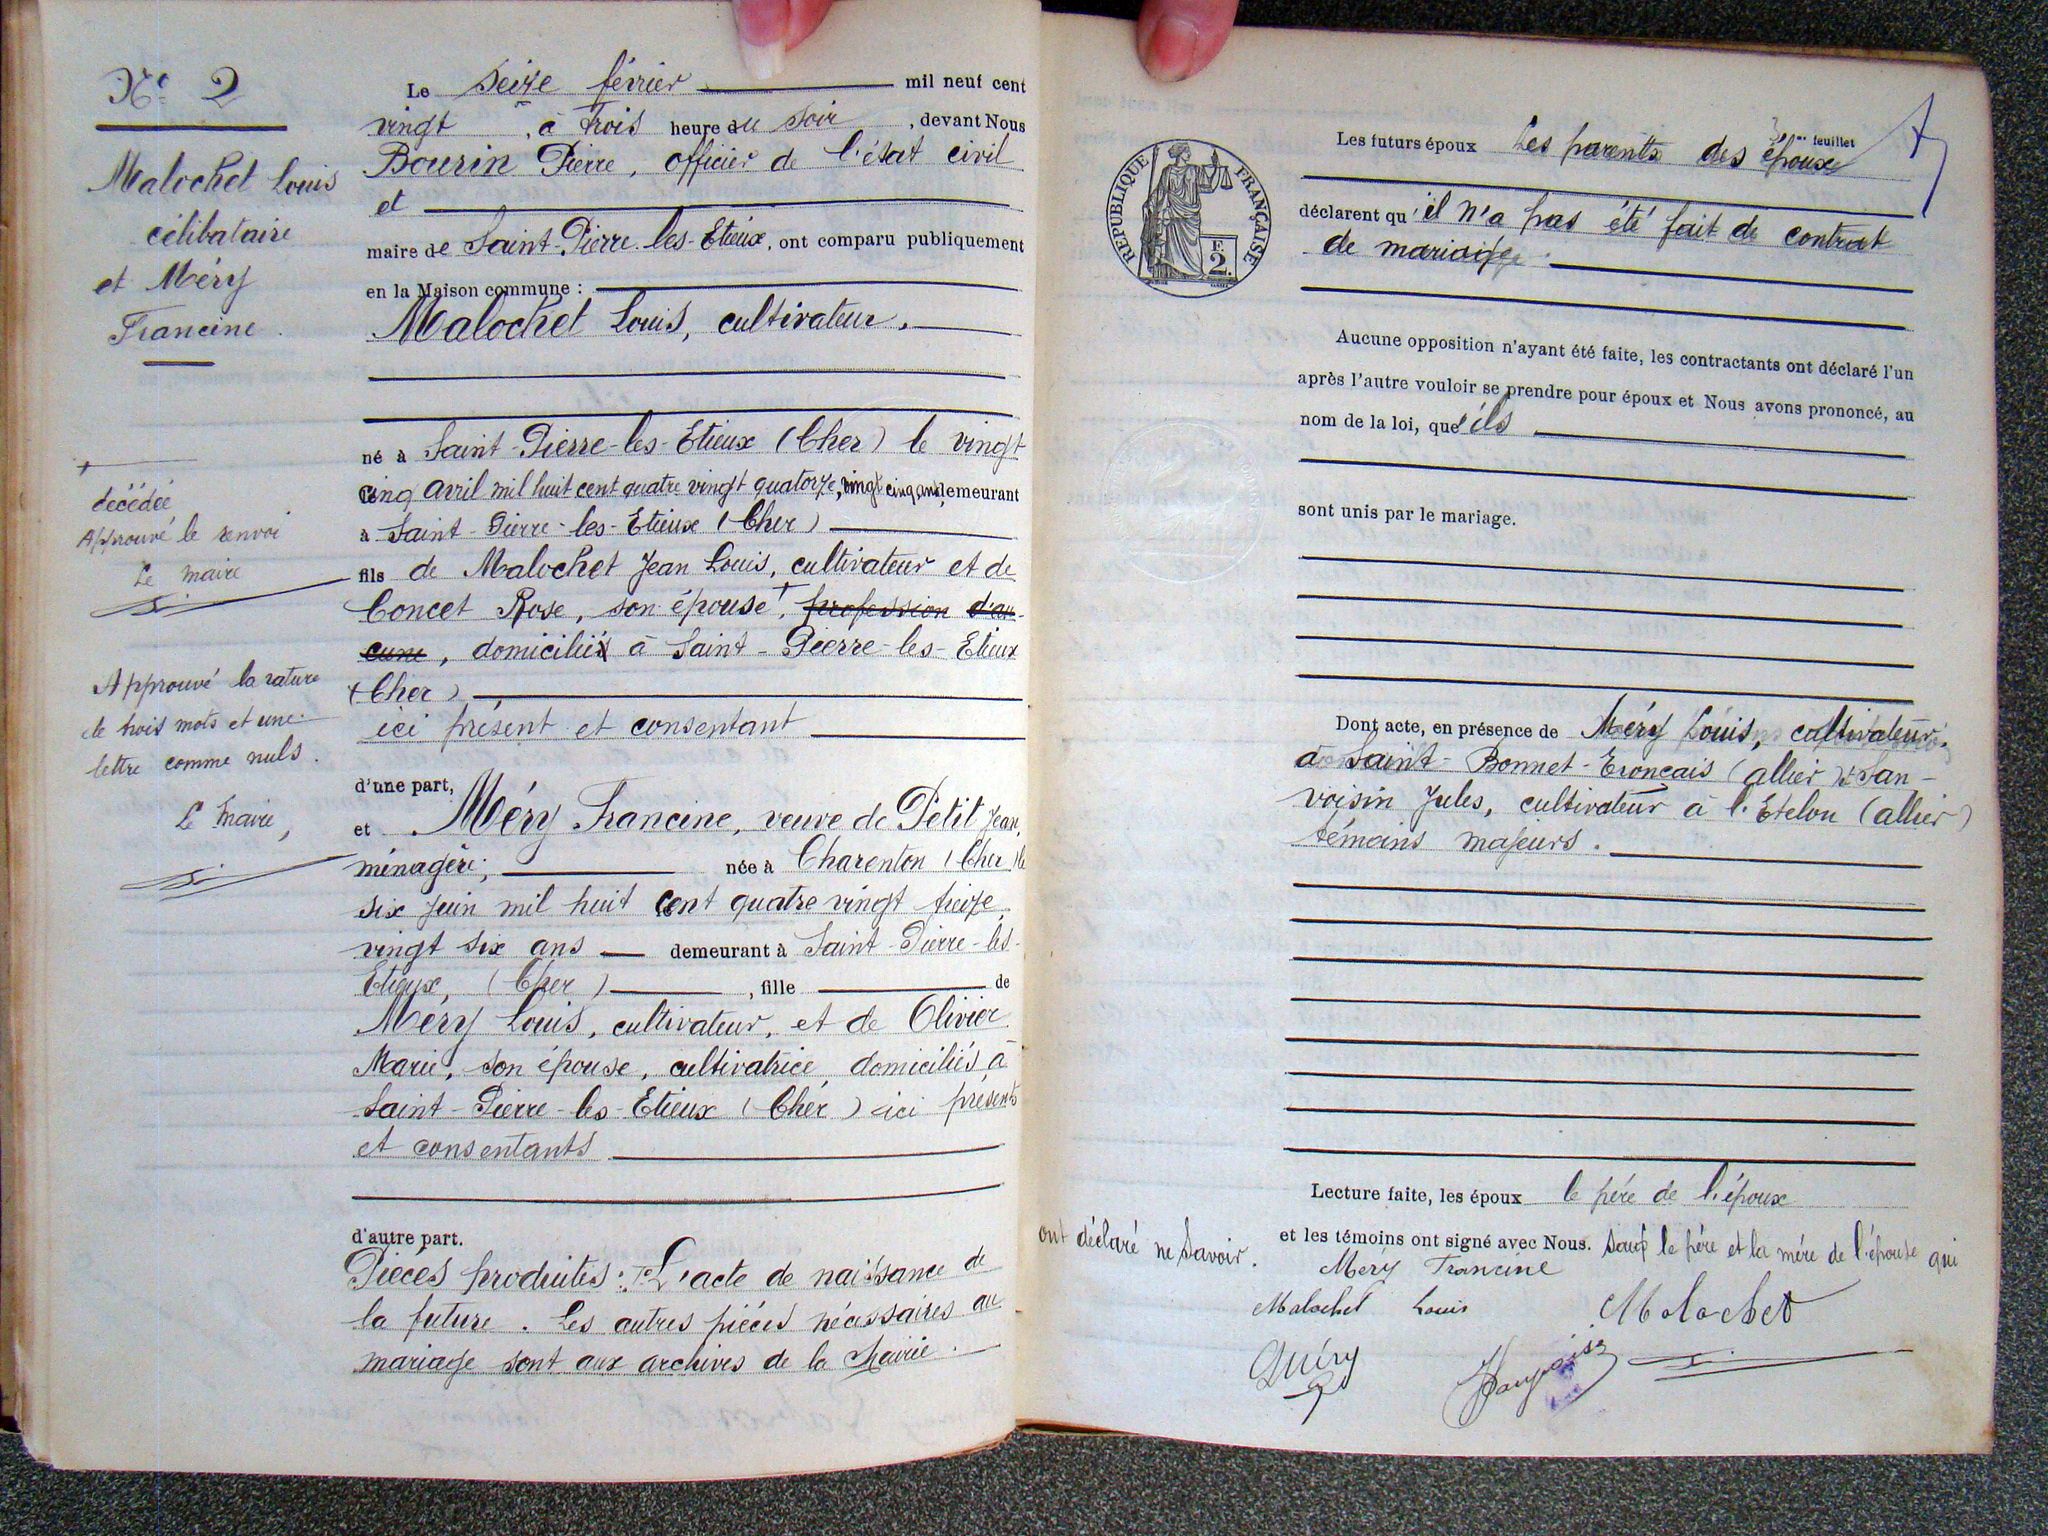 Nº 2
Malochet Louis
célibataire
et Méry
Francine
+
décédée
Approuvé le renvoi
Le maire
Approuvé la rature
de trois mots et une
lettre comme nuls.
Le Maire,
Le seize février mil neuf cent
vingt, à trois heure du soir, devant Nous
Bourin Pierre, officier de l'état civil
et
maire de Saint-Pierre-les-Etieux, ont comparu publiquement
en la Maison commune :
Malochet Louis, cultivateur,
né à Saint-Pierre-les-Etieux (Cher) le vingt
cinq avril mil huit cent quatre vingt quatorze, vingt cinq ans, demeurant
à Saint-Pierre-les-Etieux (Cher)
fils de Malochet Jean Louis, cultivateur et de
Concet Rose, son épouse +, profession d'au-
cune, domicilié à Saint-Pierre-les-Etieux
(Cher)
ici présent et consentant
d'une part,
et Méry Francine, veuve de Petit Jean,
ménagère, née à Charenton (Cher) le
six juin mil huit cent quatre vingt treize
vingt six ans demeurant à Saint-Pierre-les-
Etieux, (Cher), fille de
Méry Louis, cultivateur, et de Olivier
Marie, son épouse, cultivatrice, domiciliés à
Saint-Pierre-les-Etieux (Cher) ici présents
et consentants
d'autre part.
Pièces produites : L'acte de naissance de
la future. Les autres pièces nécessaires au
mariage sont aux archives de la Mairie.
3me feuillet
RÉPUBLIQUE FRANÇAISE
F.
2.
Les futurs époux Les parents des époux
déclarent qu'il n'a pas été fait de contrat
de mariage.
Aucune opposition n'ayant été faite, les contractants ont déclaré l'un
après l'autre vouloir se prendre pour époux et Nous avons prononcé, au
nom de la loi, qu'ils
sont unis par le mariage.
Dont acte, en présence de Méry Louis, cultivateur,
à Saint-Bonnet-Troncais (allier) et San-
voisin Jules, cultivateur à l'Etelon (allier)
témoins majeurs.
Lecture faite, les époux le père de l'époux
et les témoins ont signé avec Nous. sauf le père et la mère de l'épouse qui
ont déclaré ne savoir.
Méry Francine
Malochet Louis
Malochet
Méry